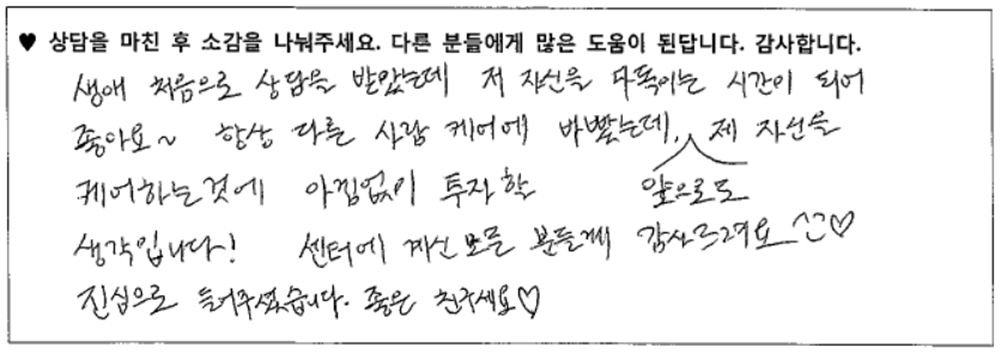 ♥ 상담을 마친 후 소감을 나눠주세요. 다른 분들에게 많은 도움이 된답니다. 감사합니다.
생애 처음으로 상담을 받았는데 저 자신을 다독이는 시간이 되어
좋아요~ 항상 다른 사람 케어에 바빴는데, 제 자신을
케어하는것에 아낌없이 투자할 앞으로도
생각입니다! 센터에 계신 모든 분들께 감사드려요^^♡
진심으로 들어주셨습니다. 좋은 친구세요♡